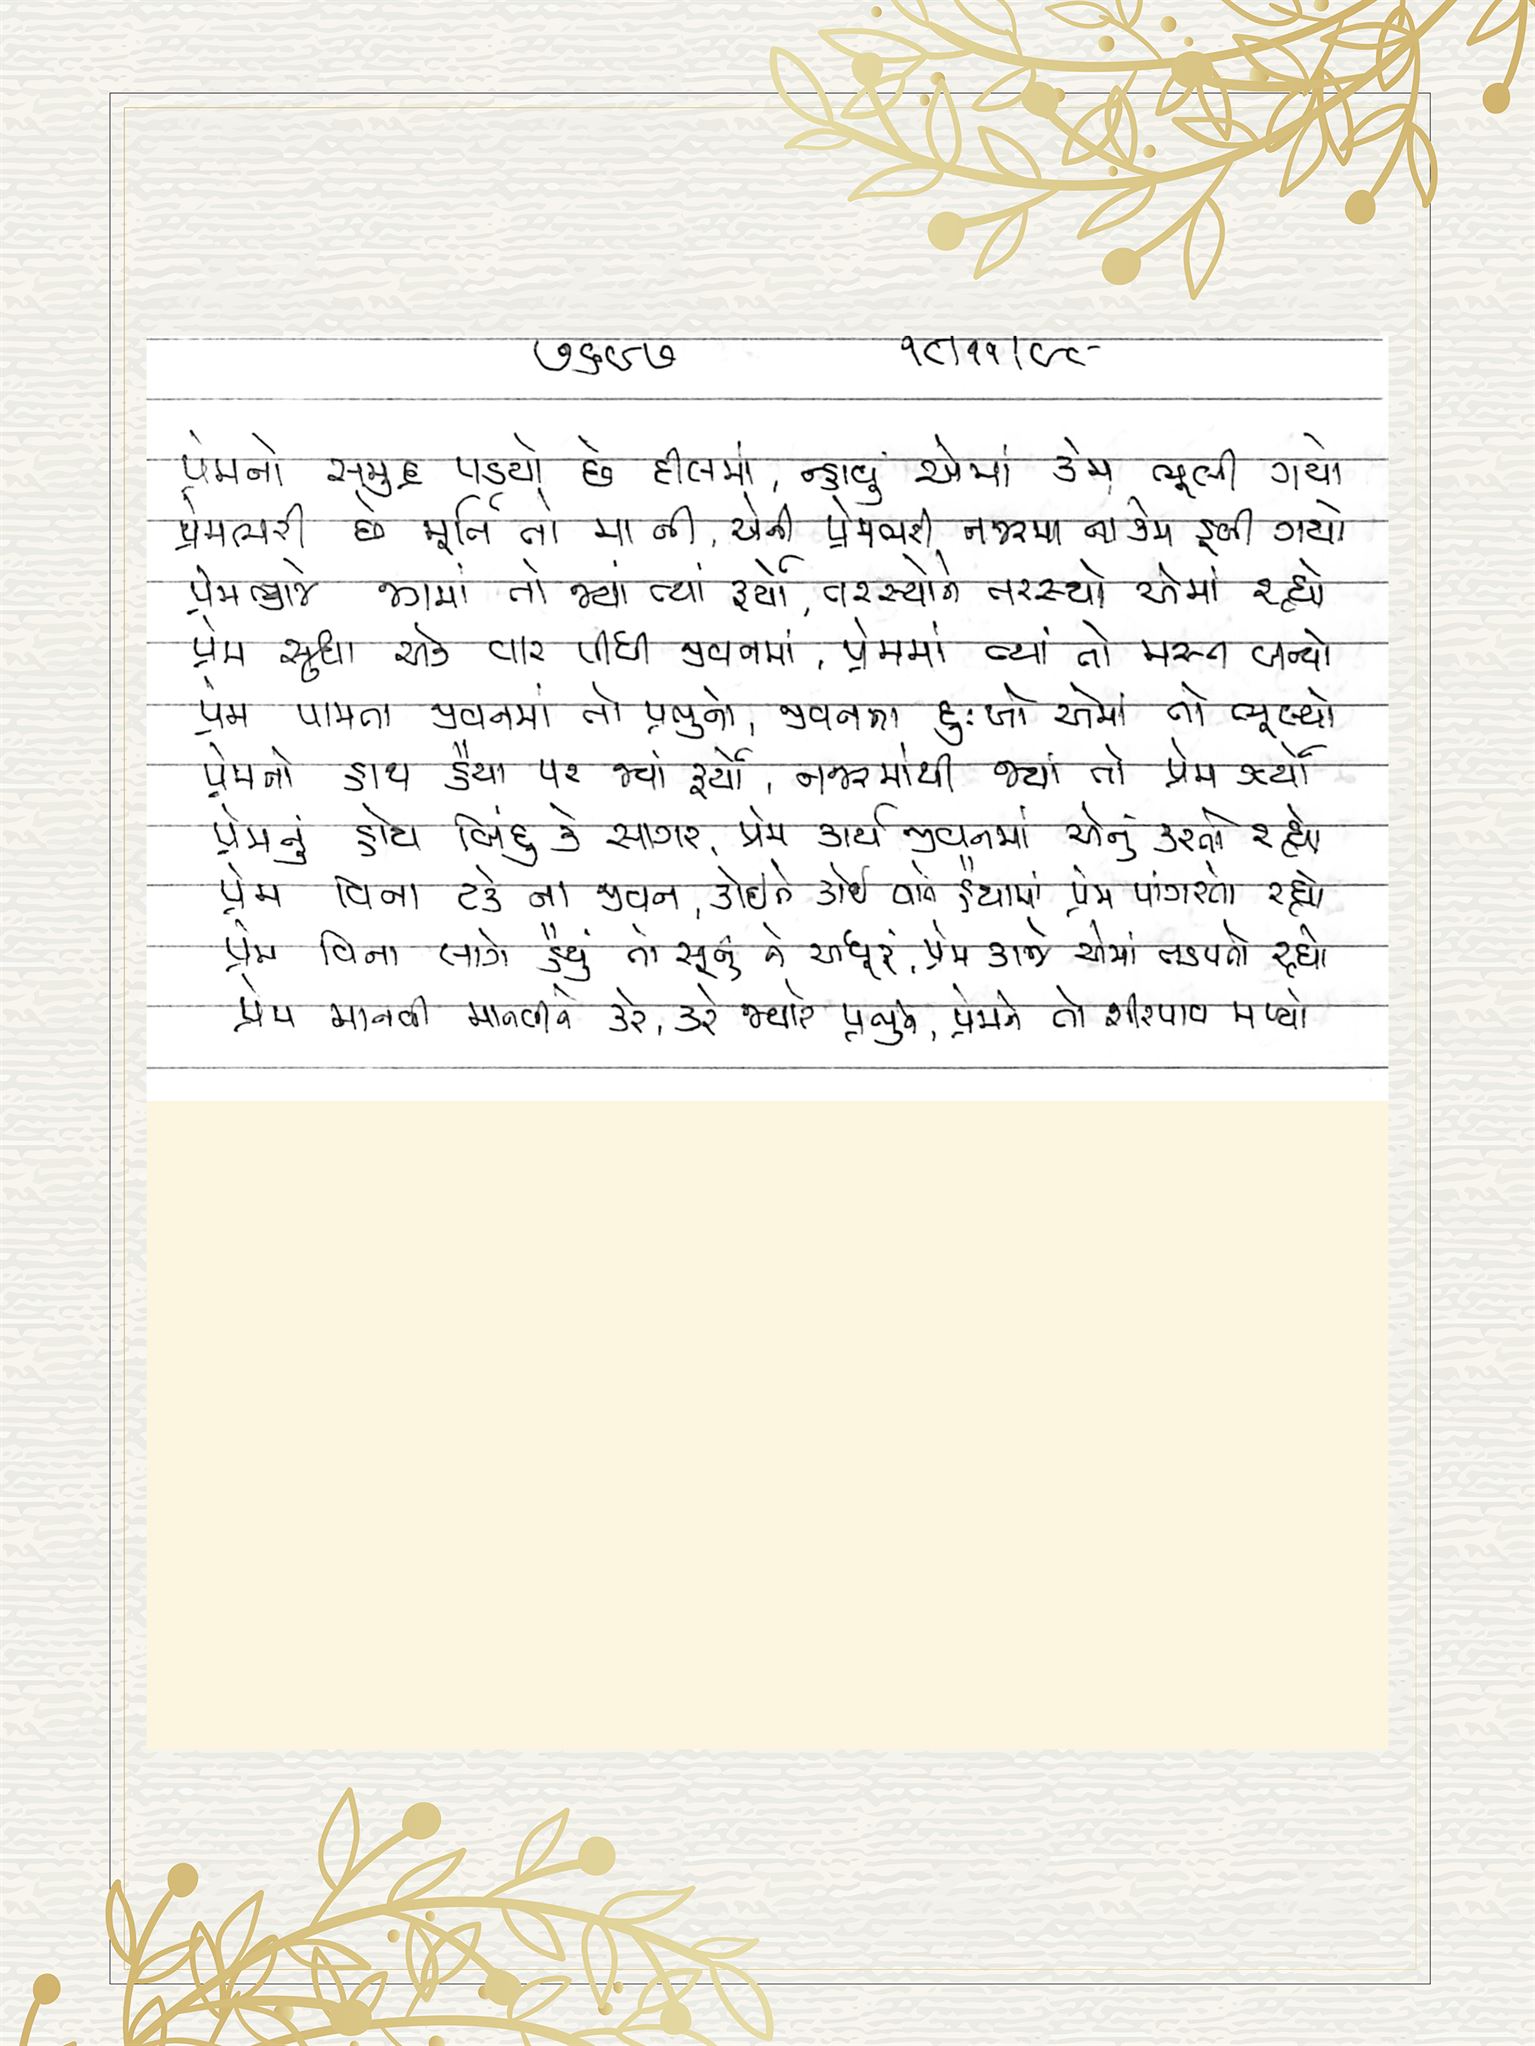 ૭૬૯૭ ૧૮/૧૧/૯૮
પ્રેમનો સમુદ્ર પડયો છે દીલમાં, ન્હાવું એમાં કેમ ભૂલી ગયો
પ્રેમભરી છે મૂર્તિ તો મા ની, એની પ્રેમભરી નજરમાં ના કેમ ડૂબી ગયો
પ્રેમ જગમાં તો જ્યાં ત્યાં ફર્યો, તરસ્યોને તરસ્યો એમાં રહ્યો
પ્રેમ સુધા એક વાર પીધી જીવનમાં, પ્રેમમાં ત્યાં તો મસ્ત બન્યો
પ્રેમ પામતા જીવનમાં તો પ્રભુનો, જીવનના દુઃખો એમાં તો ભૂલ્યો
પ્રેમનો હાથ હૈયા પર જ્યાં ફર્યો, નજરમાંથી જ્યાં તો પ્રેમ ઝર્યો
પ્રેમનું હોય બિંદુ કે સાગર, પ્રેમ કાર્ય જીવનમાં એનું કરતો રહ્યો
પ્રેમ વિના ટકે ના જીવન, કોઈને કોઈ વાતે હૈયામાં પ્રેમ પાંગરતો રહ્યો
પ્રેમ વિના લાગે હૈયું તો સૂનું ને અધૂરું, પ્રેમ કાજે એમાં તડપતો રહ્યો
પ્રેમ માનવી માનવીને કરે, કરે જ્યારે પ્રભુને, પ્રેમને તો શીરપાવ મળ્યો